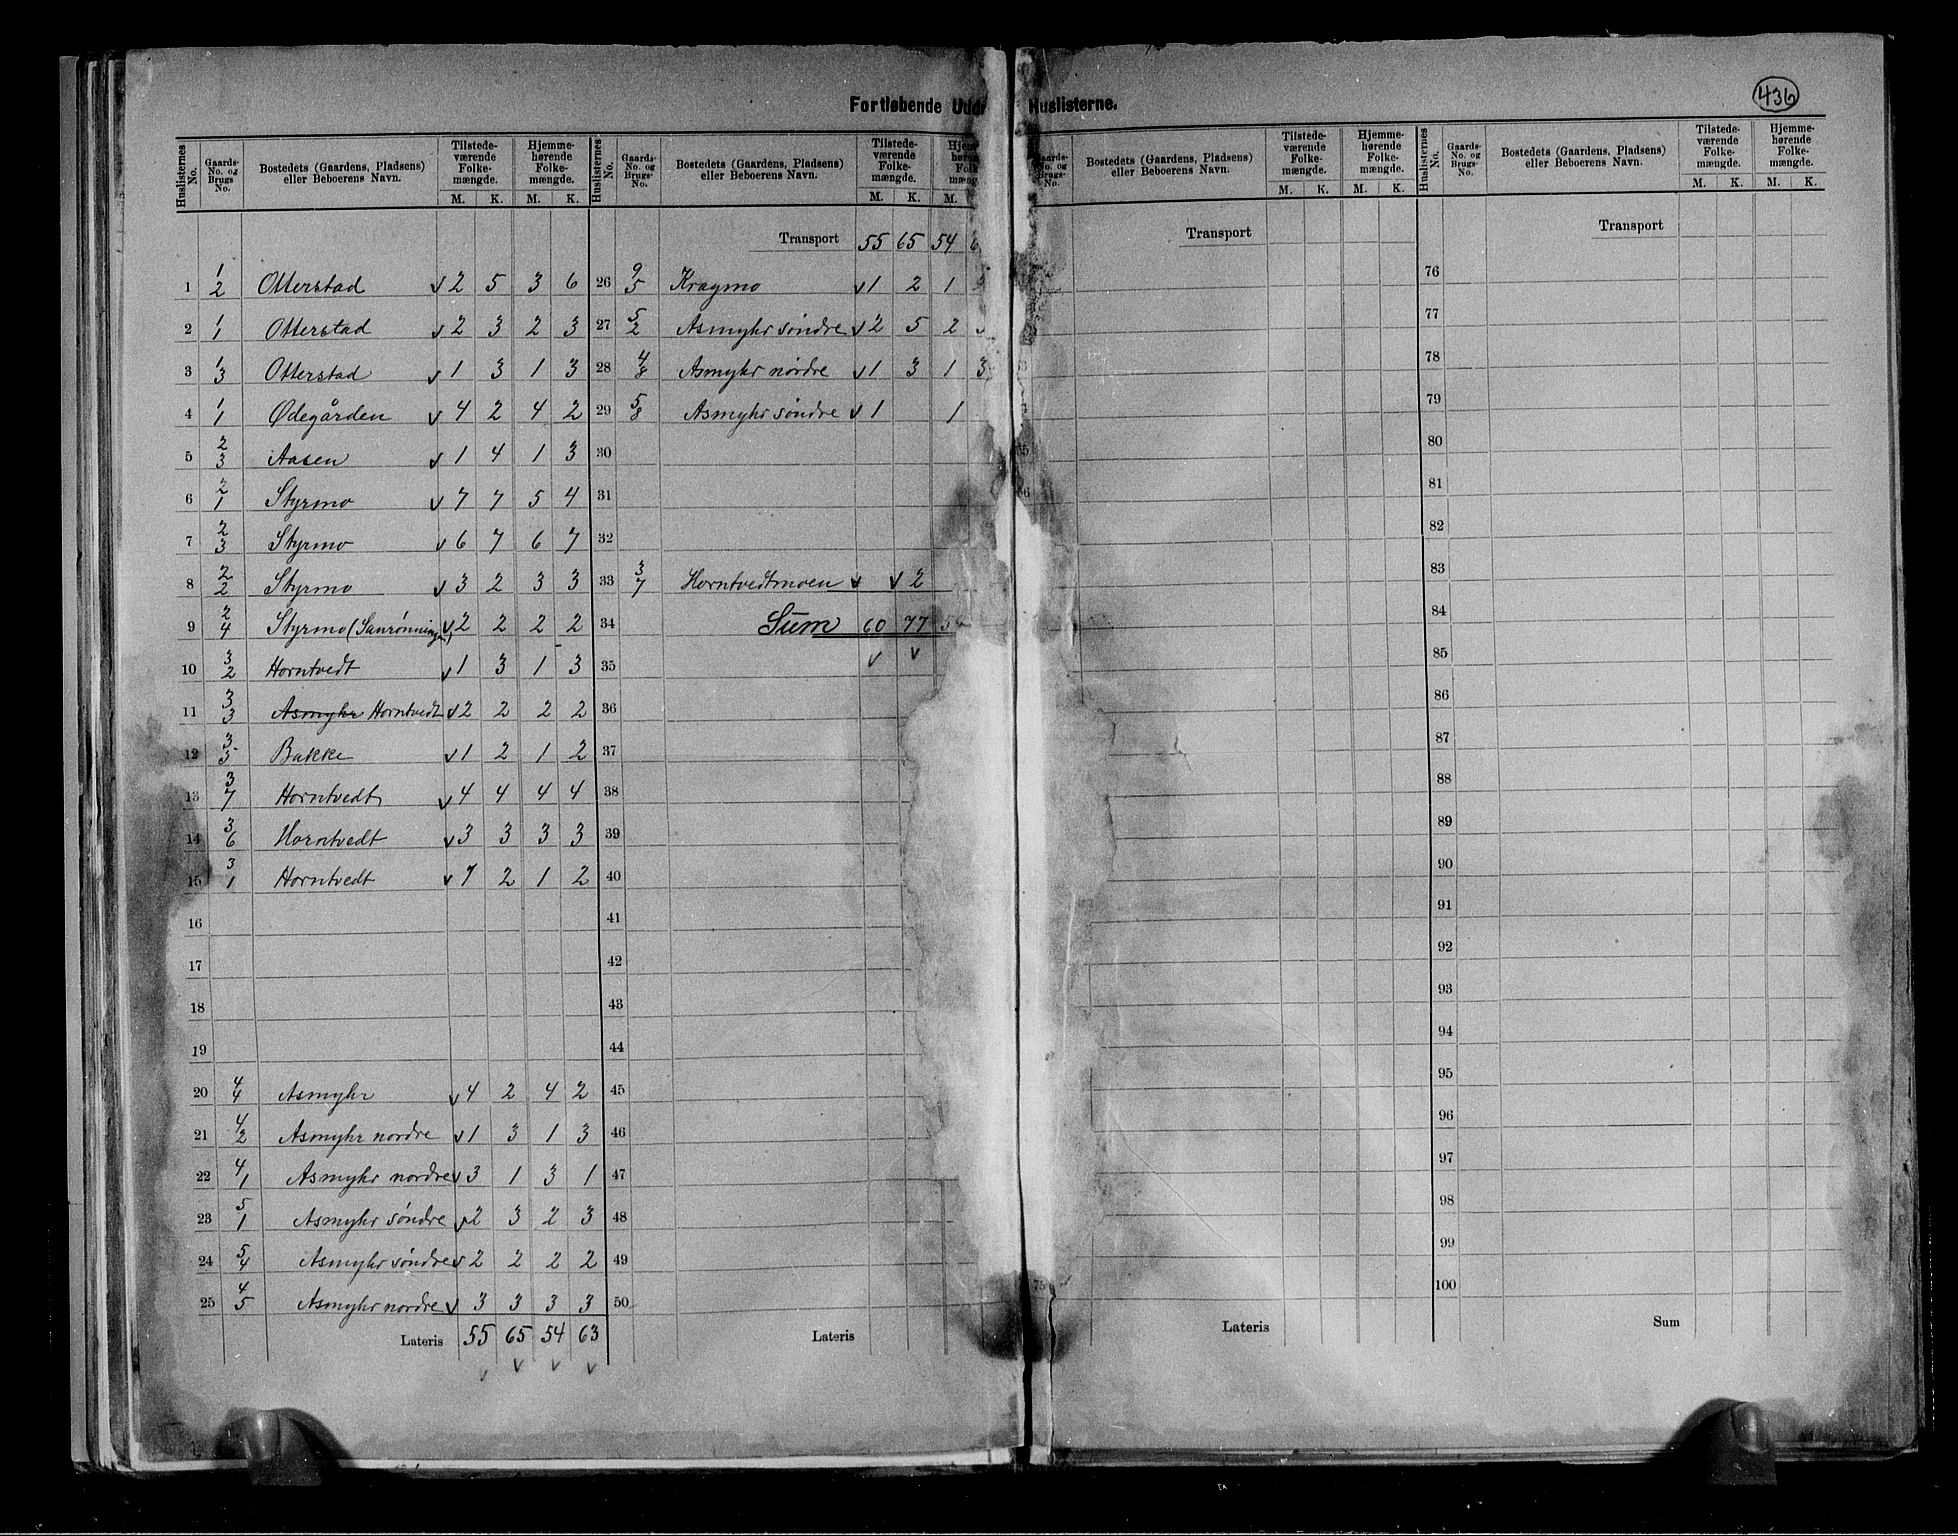 436
Fortløbende Udd Huslisterne.
Huslisternes No. | Gaards-No. og Brugs-No. | Bostedets (Gaardens, Pladsens) eller Beboerens Navn. | Tilstede-værende Folke-mængde. M. K. | Hjemme-hørende Folke-mængde. M. K.
1 | 1/2 | Otterstad | v 2 | 5 | 3 | 6
2 | 1/1 | Otterstad | v 2 | 3 | 2 | 3
3 | 1/3 | Otterstad | v 1 | 3 | 1 | 3
4 | 1/1 | Ødegården | v 4 | 2 | 4 | 2
5 | 2/3 | Aasen | v 1 | 4 | 1 | 3
6 | 2/1 | Styrmo | v 7 | 7 | 5 | 4
7 | 2/3 | Styrmo | v 6 | 7 | 6 | 7
8 | 2/2 | Styrmo | v 3 | 2 | 3 | 3
9 | 2/4 | Styrmo (Sanrønningen) | v 2 | 2 | 2 | 2
10 | 3/2 | Horntvedt | v 1 | 3 | 1 | 3
11 | 3/3 | Asmyhr Horntvedt | v 2 | 2 | 2 | 2
12 | 3/5 | Bakke | v 1 | 2 | 1 | 2
13 | 3/7 | Horntvedt | v 4 | 4 | 4 | 4
14 | 3/6 | Horntvedt | v 3 | 3 | 3 | 3
15 | 3/1 | Horntvedt | v 1 | 2 | 1 | 2
16
17
18
19
20 | 4/4 | Asmyhr | v 4 | 2 | 4 | 2
21 | 4/2 | Asmyhr nordre | v 1 | 3 | 1 | 3
22 | 4/1 | Asmyhr nordre | v 3 | 1 | 3 | 1
23 | 5/1 | Asmyhr søndre | v 2 | 3 | 2 | 3
24 | 5/4 | Asmyhr søndre | v 2 | 2 | 2 | 2
25 | 4/5 | Asmyhr nordre | v 3 | 3 | 3 | 3
Lateris 55 65 54 63
v v v v
Huslisternes No. | Gaards-No. og Brugs-No. | Bostedets (Gaardens, Pladsens) eller Beboerens Navn. | Tilstede-værende Folke-mængde. M. K. | M.
Transport 55 65 54 6
26 | 9/5 | Kragmo | v 1 | 2 | 1
27 | 5/2 | Asmyhr søndre | v 2 | 5 | 2
28 | 4/8 | Asmyhr nordre | v 1 | 3 | 1 | 3
29 | 5/8 | Asmyhr søndre | v 1 | | 1
30
31
32
33 | 3/7 | Horntvedtmoen | v | v 2
34 | Sum | 60 | 77 | 5
v v
35
36
37
38
39
40
41
42
43
44
45
46
47
48
49
50
Lateris
Bostedets (Gaardens, Pladsens) eller Beboerens Navn. | Tilstede-værende Folke-mængde. M. K. | Hjemme-hørende Folke-mængde. M. K.
Transport
75
Lateris
Huslisternes No. | Gaards-No. og Brugs-No. | Bostedets (Gaardens, Pladsens) eller Beboerens Navn. | Tilstede-værende Folke-mængde. M. K. | Hjemme-hørende Folke-mængde. M. K.
Transport
76
77
78
79
80
81
82
83
84
85
86
87
88
89
90
91
92
93
94
95
96
97
98
99
100
Sum